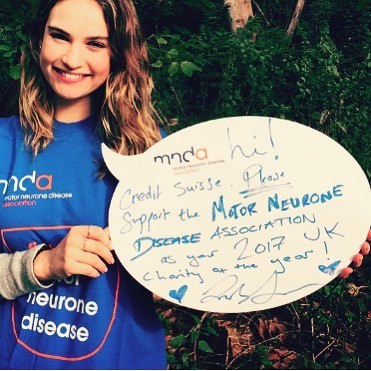 mnda
motor neurone disease
association
hi!
Credit Suisse. Please
Support the MOTOR NEURONE
DISEASE ASSOCIATION
as your 2017 UK
Charity of the year!
mnda
motor neurone disease
association
neurone
disease